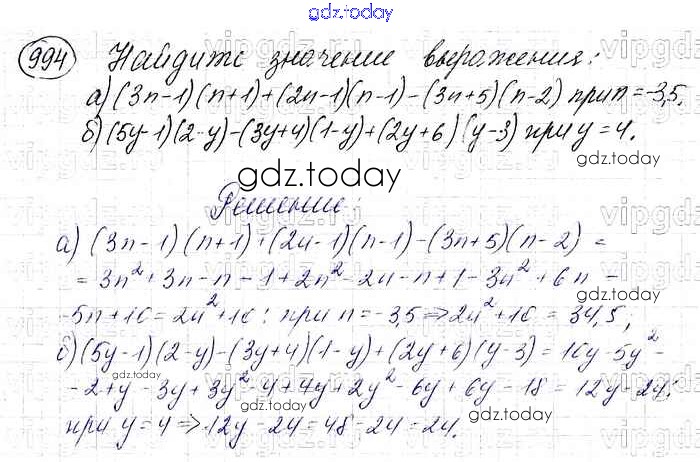 gdz.today
994 Найдите значение выражения:
а) (3n-1)(n+1)+(2n-1)(n-1)-(3n+5)(n-2) при n=-3,5.
б) (5y-1)(2-y)-(3y+4)(1-y)+(2y+6)(y-3) при y=4.
gdz.today
gdz.today
Решение:
а) (3n-1)(n+1)+(2n-1)(n-1)-(3n+5)(n-2) =
= 3n²+3n-n-1+2n²-2n-n+1-3n²+6n-
-5n+10=2n²+10; при n=-3,5⇒2n²+10=34,5;
б) (5y-1)(2-y)-(3y+4)(1-y)+(2y+6)(y-3)=10y-5y²-
-2+y-3y+3y²-4+4y+2y²-6y+6y-18=12y-24;
при y=4⇒12y-24=48-24=24.
gdz.today
gdz.today
gdz.today
gdz.today